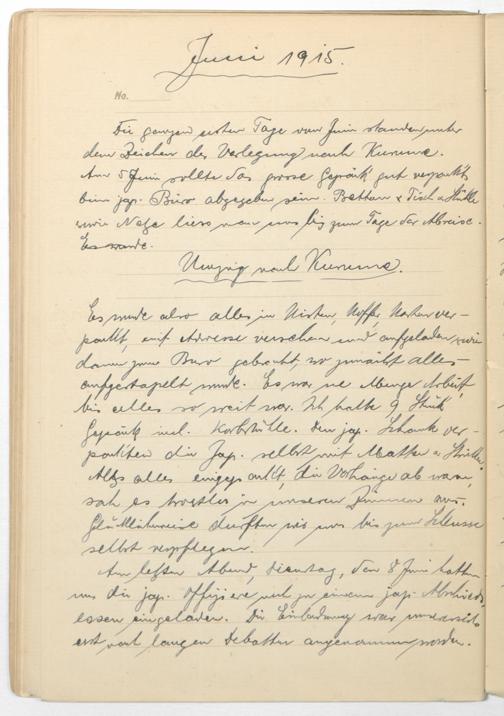 Juni 1915.
No.
Die ganzen ersten Tage vom Juni standen unter
dem Zeichen der Verlegung nach Kurume.
Am 5 Juni sollte das grosse Gepäck gut verpackt
beim jap. Büro abgegeben sein. Betten & Tisch & Stühle
sowie Netze liess man uns bis zum Tage der Abreise.
Es wurde.
Umzug nach Kurume.
Es wurde also alles in Kisten, Koffer, Matten ver-
packt, mit Adresse versehen und aufgeladen sowie
dann zum Büro gebracht, wo zunächst alles
aufgestapelt wurde. Es war ne Menge Arbeit,
bis alles so weit war. Ich hatte 9 Stück
Gepäck incl. Korbstühle. Den jap. Schrank ver-
packten die Jap. selbst mit Matten & Stricken.
Als alles eingepackt, die Vorhänge ab waren,
sah es trostlos in unseren Zimmern aus.
Glücklicherweise durften wir uns bis zum Schlusse
selbst verpflegen.
Am letzten Abend, Dienstag, den 8 Juni hatten
uns die jap. Offiziere noch zu einem jap. Abschieds
essen eingeladen. Die Einladung war
erst nach langen Debatten angenommen worden.